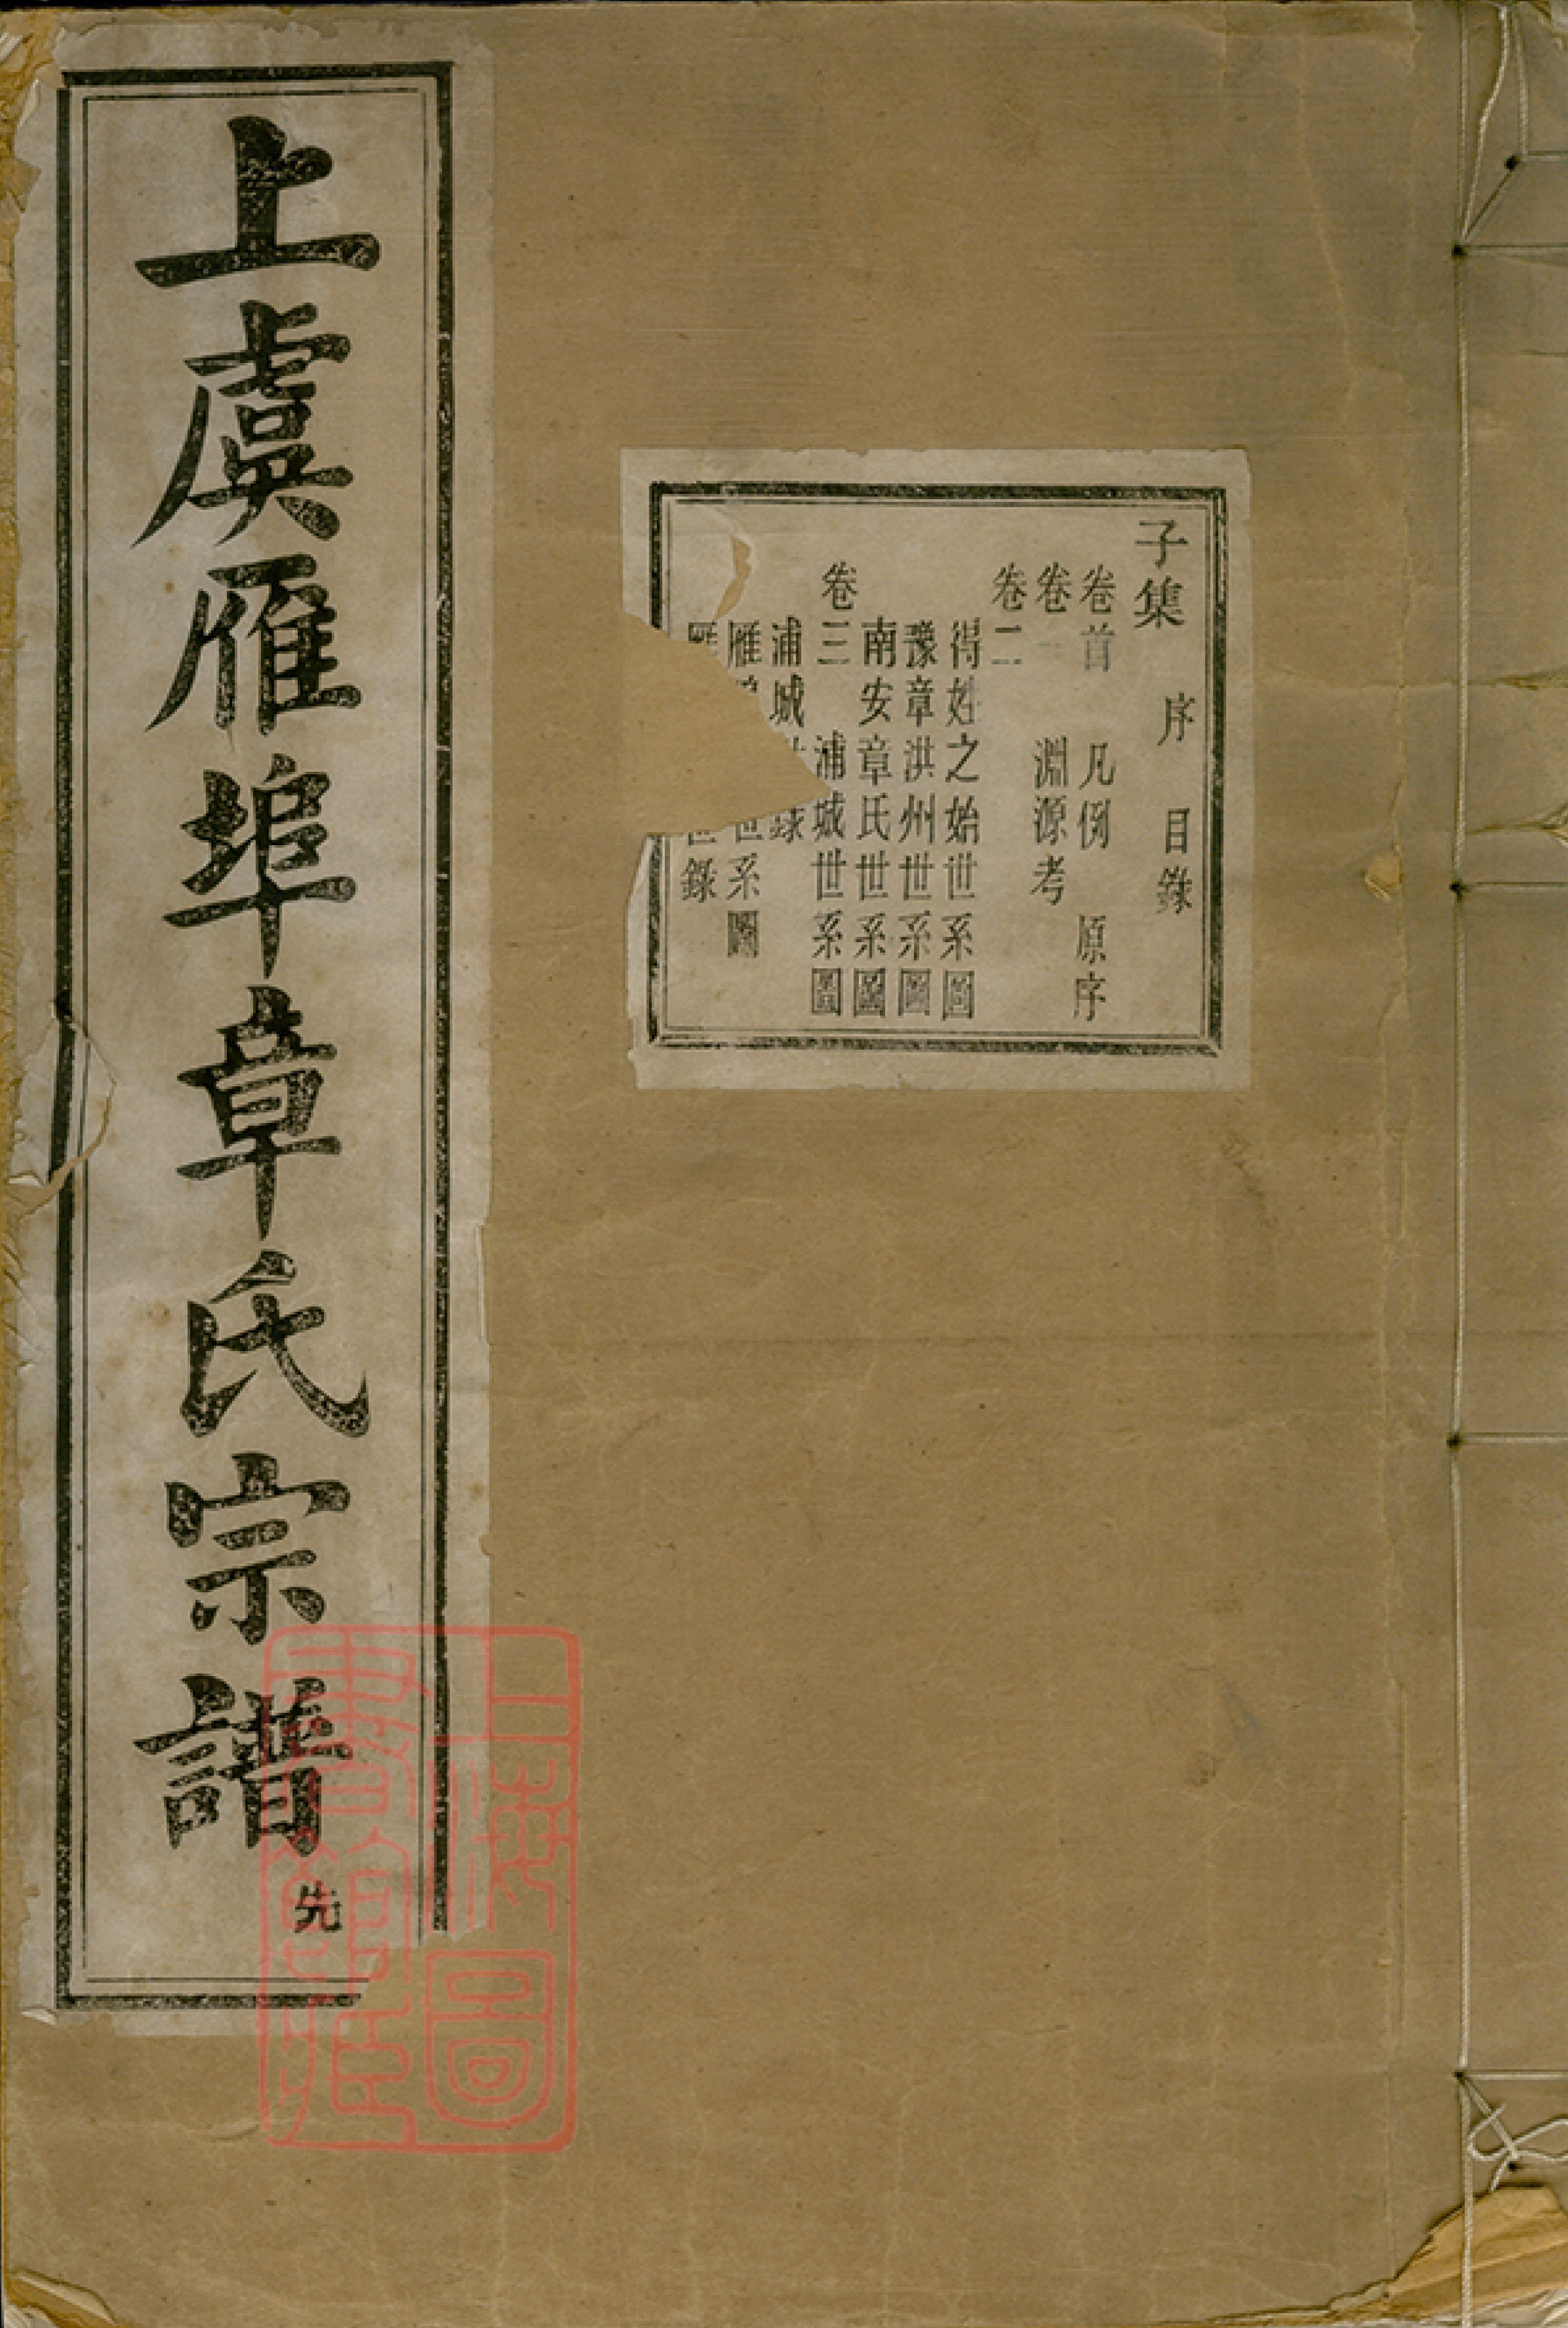 子集 序 目錄
卷首 凡例 原序
卷一 淵源考
卷二
得姓之始世系圖
豫章洪州世系圖
南安章氏世系圖
卷三 浦城世系圖
浦城 錄
雁 世系圖
世錄
上虞雁埠章氏宗譜 先
上海圖書館藏